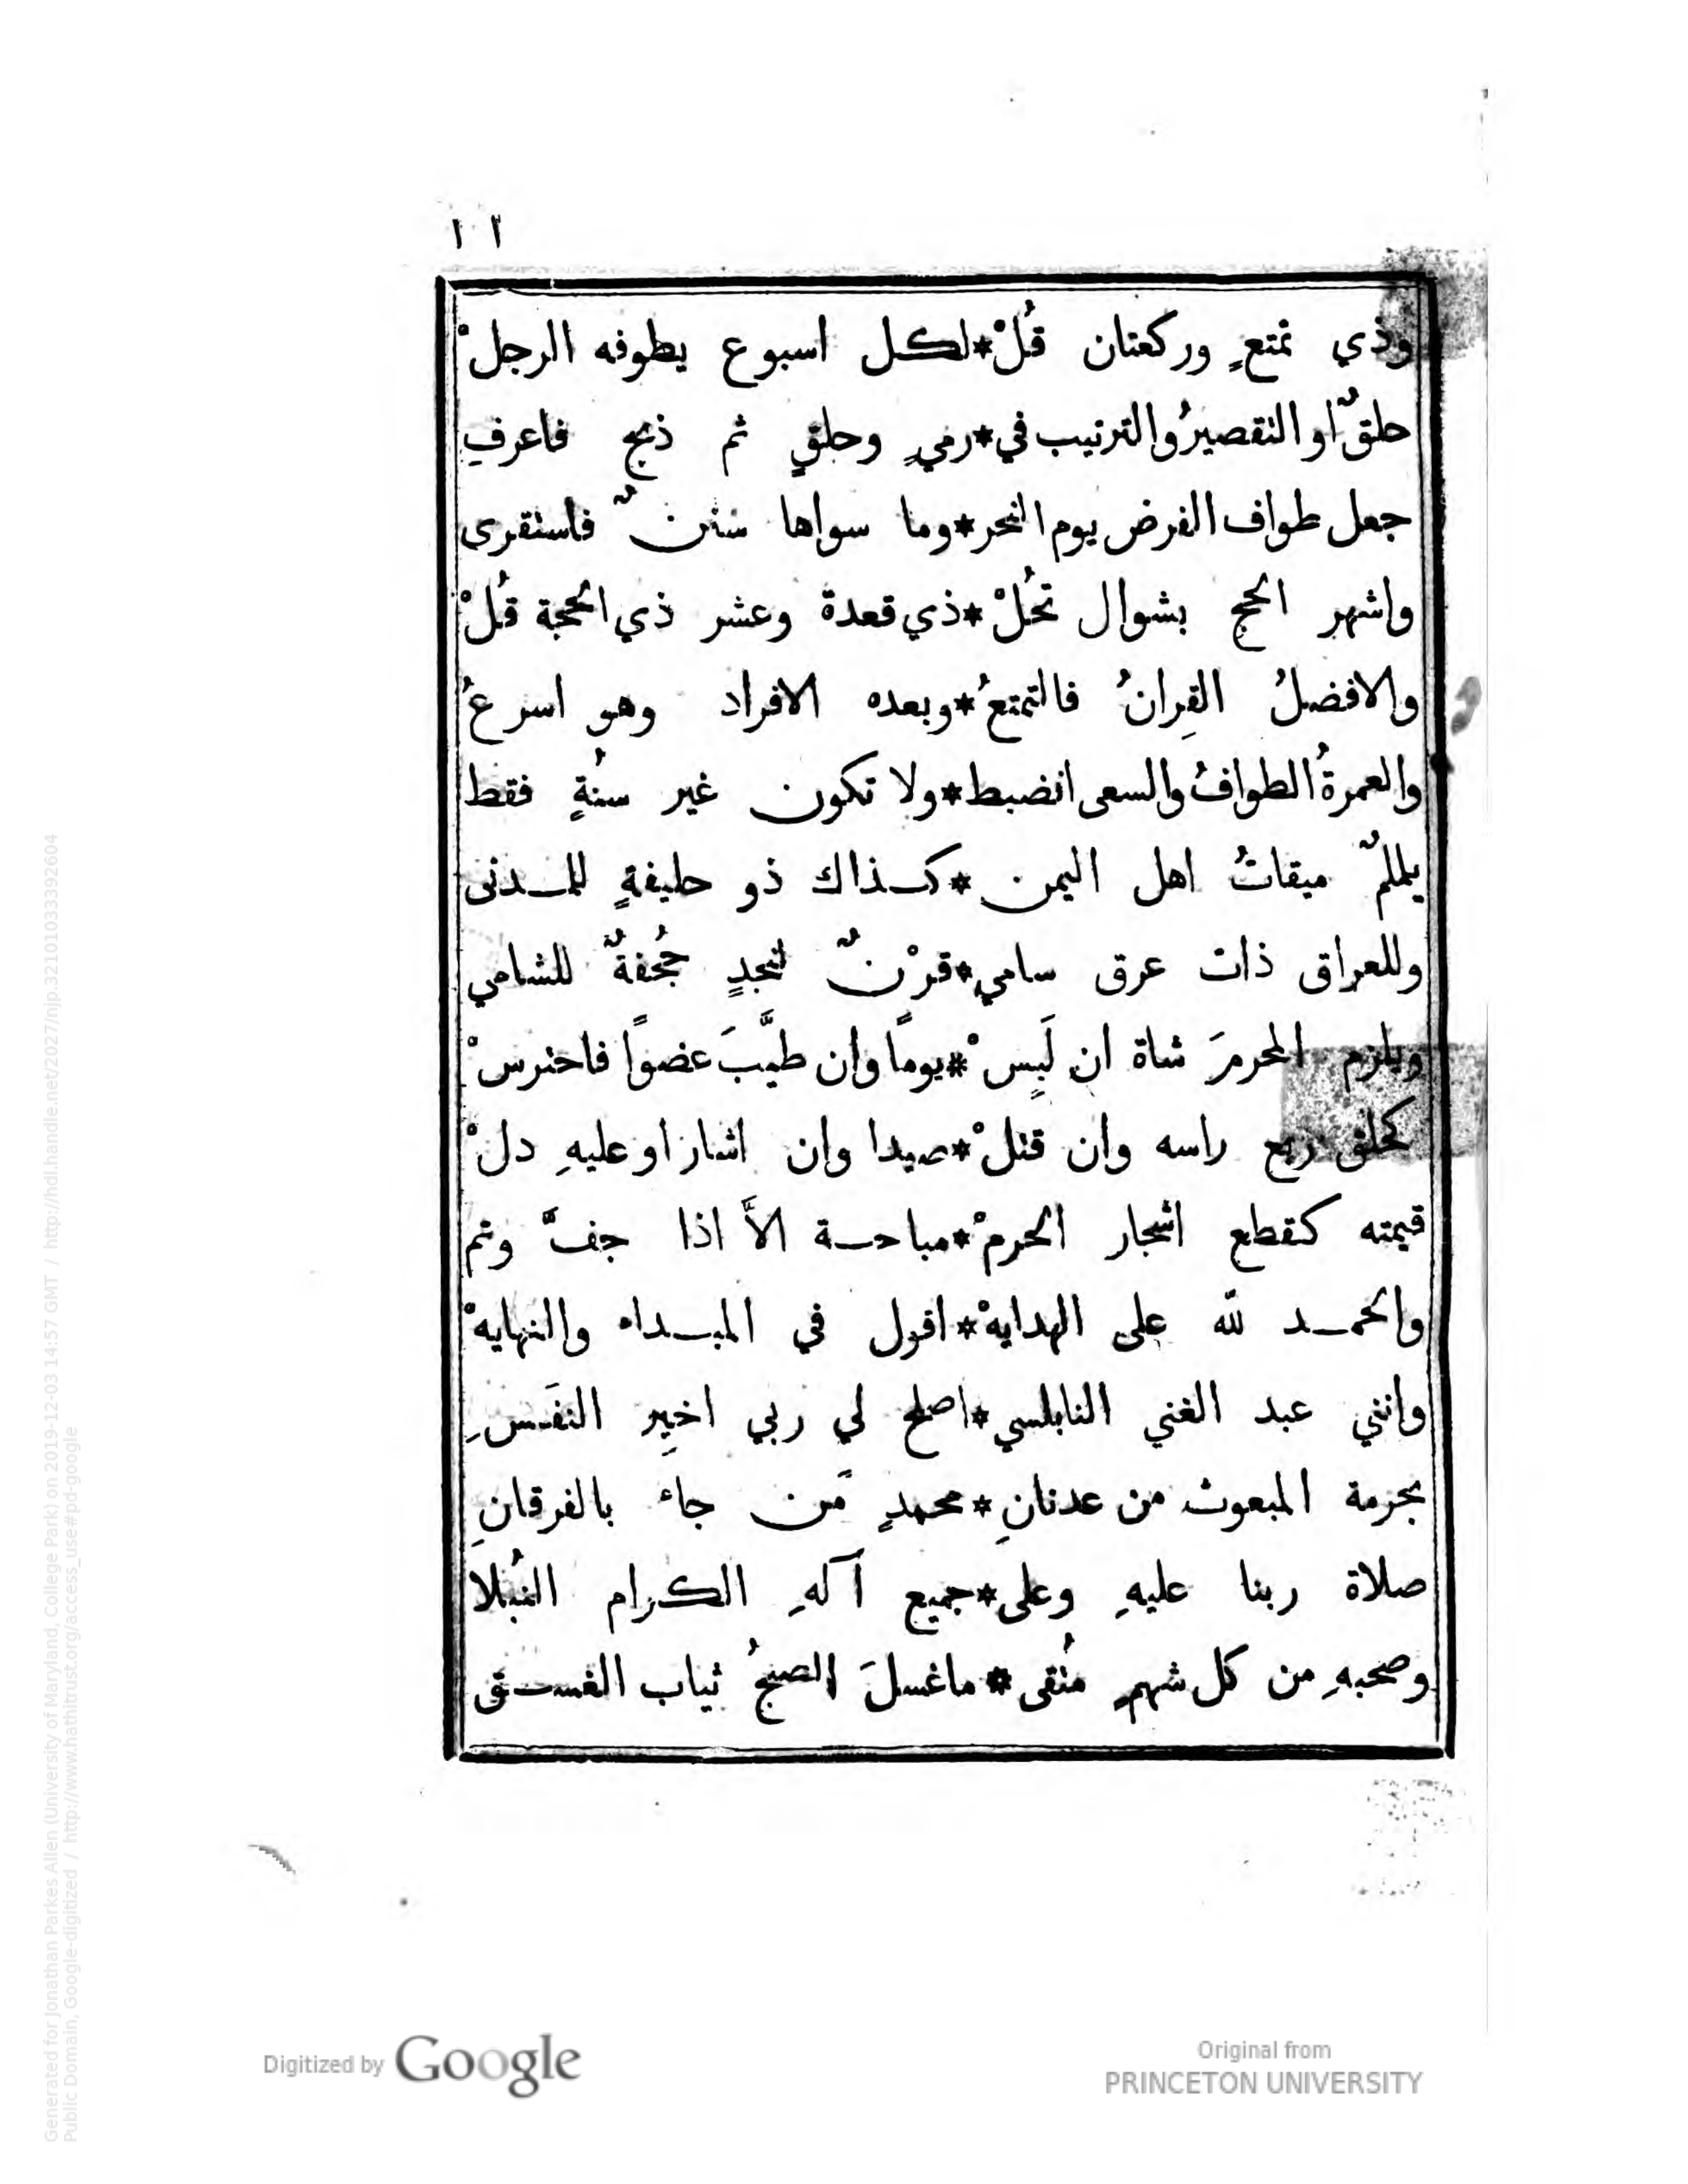 ١١
وذي تمتعٍ وركعتان قُلْ*لكل اسبوع يطوفه الرجلْ
حلقٌ او التقصيرُ والترتيب في*رميٍ وحلقٍ ثم ذبح فاعرفِ
جعل طواف الفرض يوم النحر*وما سواها سننٌ فاستقرى
واشهر الحج بشوال تحُلْ*ذي قعدة وعشر ذي الحجة قُلْ
والافضلُ القِرانُ فالتمتعُ*وبعده الافراد وهو اسرعُ
والعمرةُ الطوافُ والسعى انضبط*ولا تكون غير سنُةٍ فقط
يلملمٌ ميقاتُ اهل اليمن*كذاك ذو حليفةٍ للمدنى
وللعراق ذات عرق سامي*قرْنٌ لنجدٍ جُحفةٌ للشامي
ويلزم المحرمَ شاة ان لَبِسْ*يومًا وان طيَّبَ عضوًا فاحترسْ
كحلق ربع راسه وان قتلْ*صيدا وان اشار او عليهِ دلْ
قيمته كقطع اشجار الحرمْ*مباحة الاَّ اذا جفَّ وتم
والحمد لله على الهدايهْ*اقول في المبداء والنهايهْ
وانني عبد الغني النابلسي*اصلح لي ربي اخيِر النفَسِ
بحرمة المبعوث من عدنانِ*محمدٍ مَن جاء بالفرقانِ
صلاة ربنا عليهِ وعلى*جميع آلهِ الكرام النبُلا
وصحبهِ من كل شهمٍ مُتقى*ماغسلَ الصبحُ ثياب الغسق
Digitized by Google
Original from
PRINCETON UNIVERSITY
Generated for Jonathan Parkes Allen (University of Maryland, College Park) on 2019-12-03 14:57 GMT / http://hdl.handle.net/2027/njp.32101033392604
Public Domain, Google-digitized / http://www.hathitrust.org/access_use#pd-google